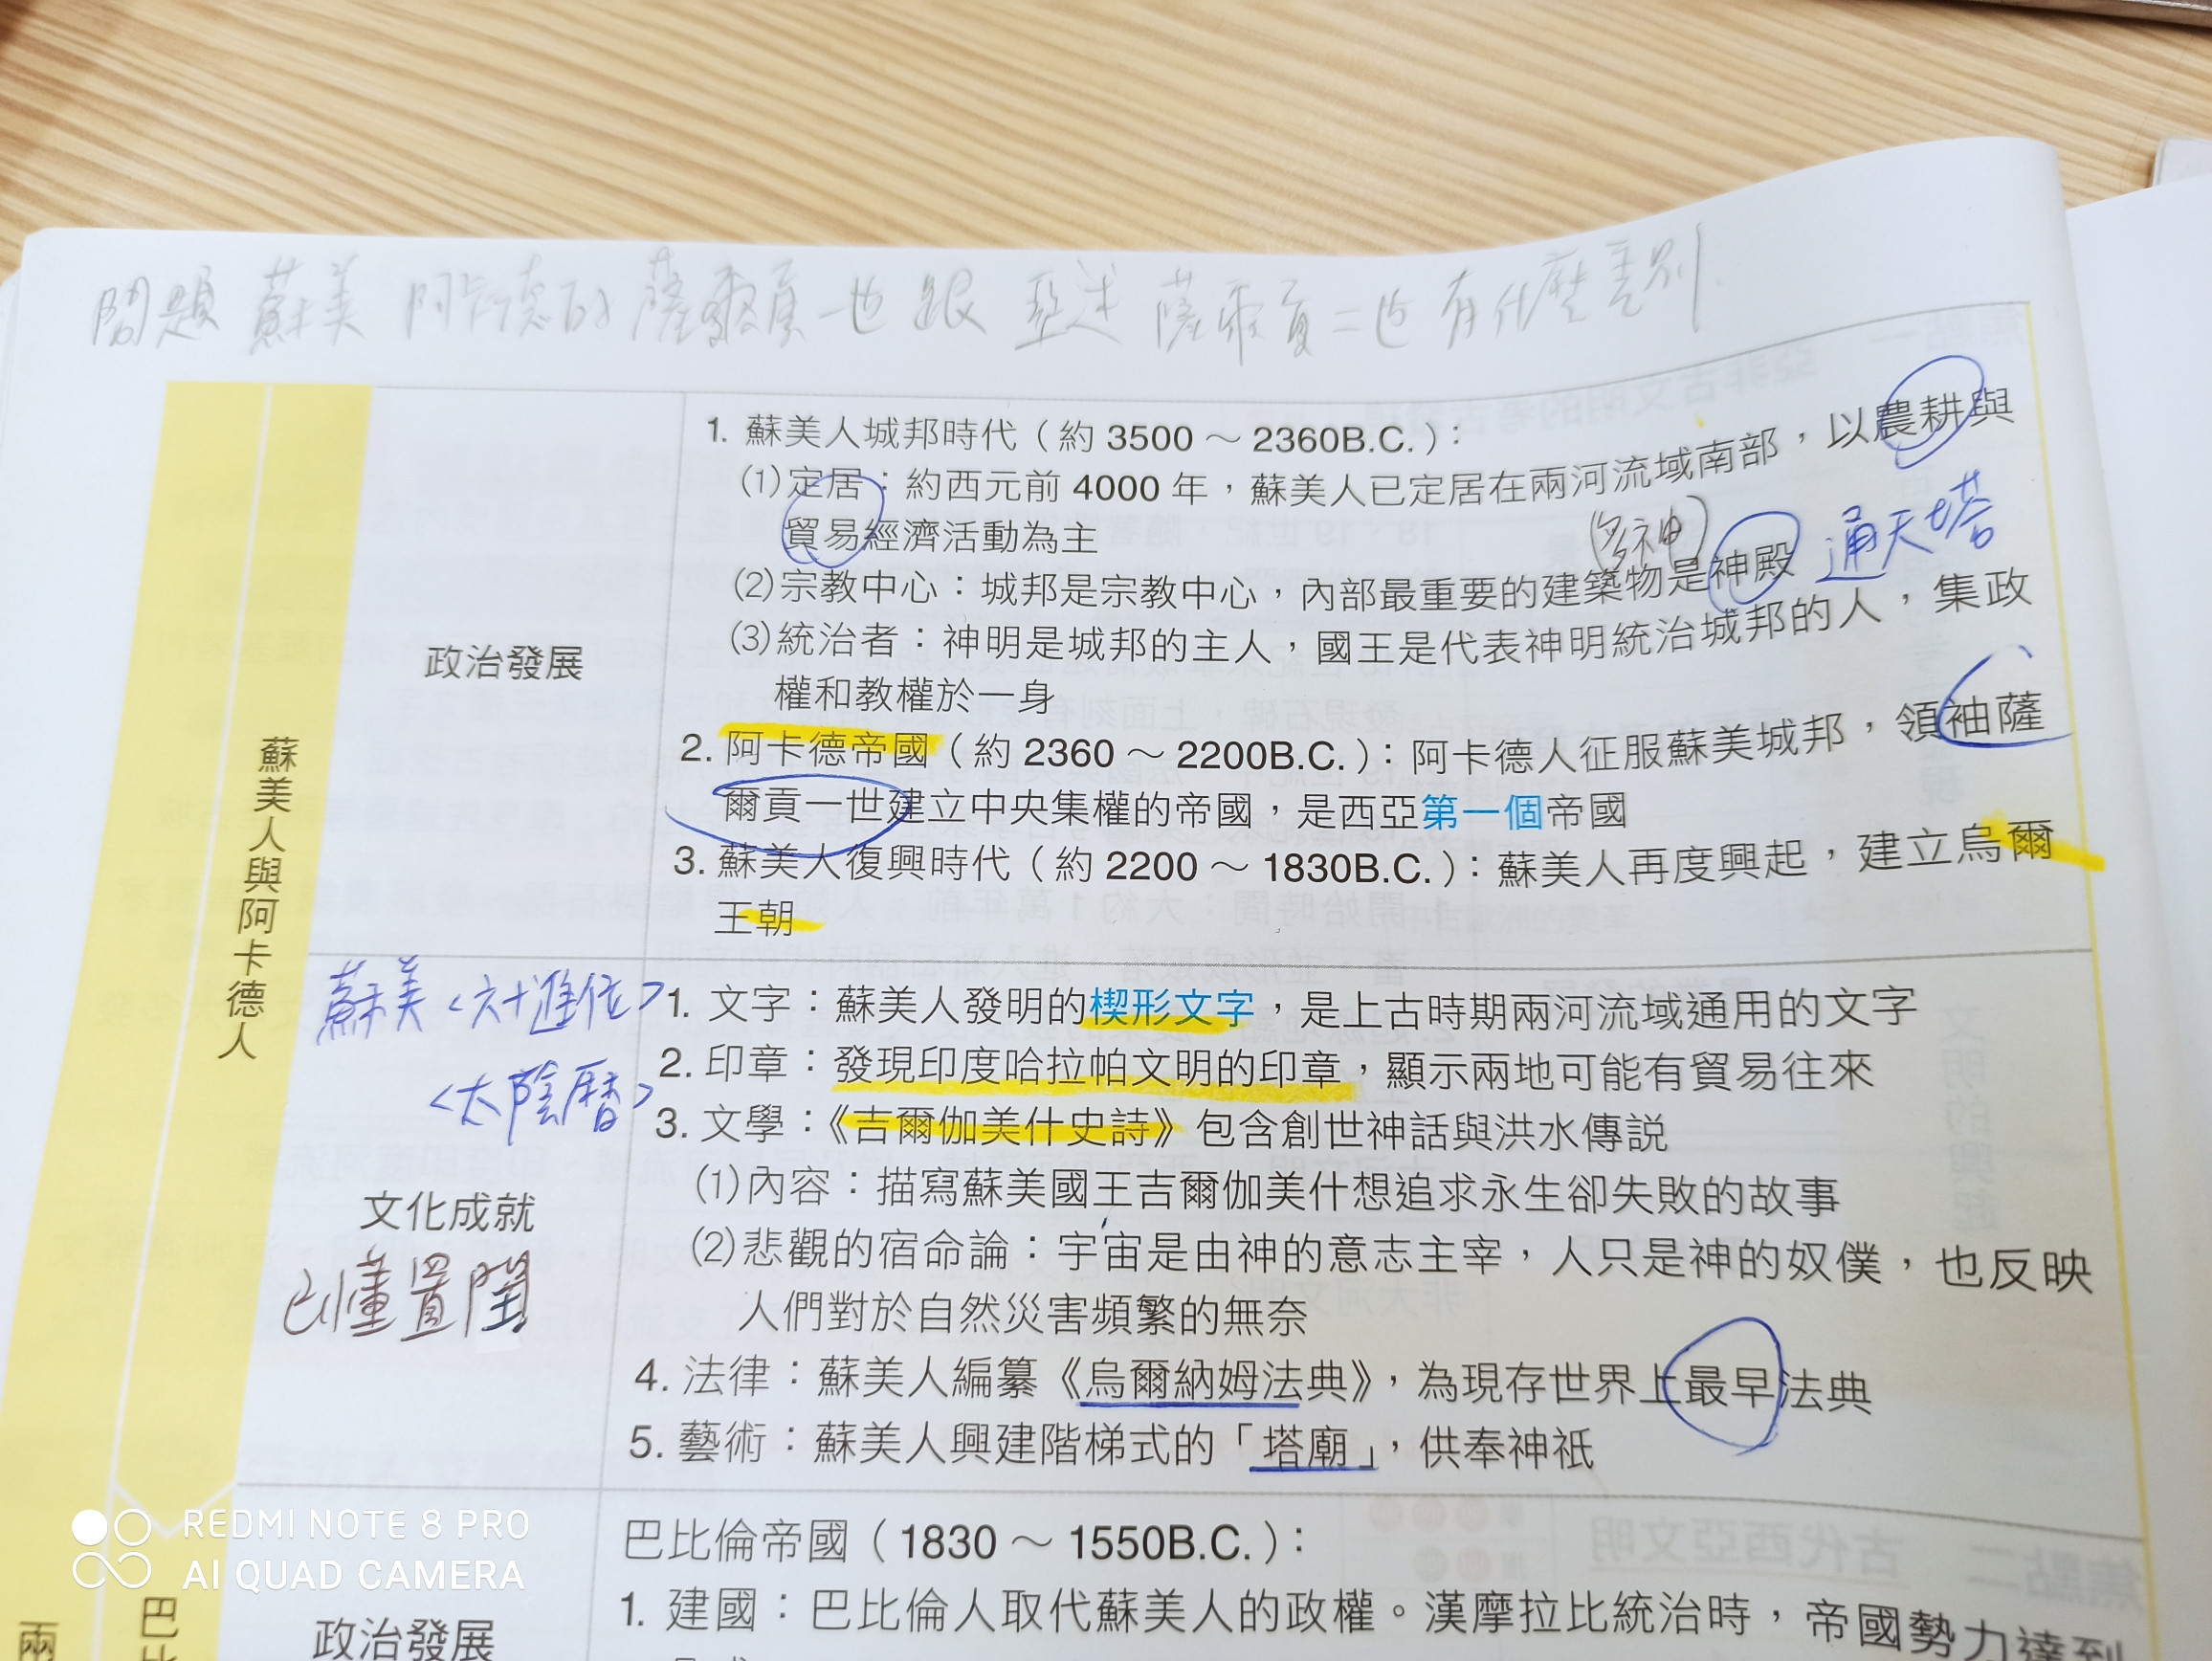 問題 蘇美 阿卡德的 薩爾貢一世 跟 亞述 薩爾貢二世 有什麼差別
蘇美人與阿卡德人
政治發展
1. 蘇美人城邦時代（約 3500 ～ 2360B.C.）：
(1)定居：約西元前 4000 年，蘇美人已定居在兩河流域南部，以農耕與
貿易經濟活動為主
(多神)
通天塔
(2)宗教中心：城邦是宗教中心，內部最重要的建築物是神殿
(3)統治者：神明是城邦的主人，國王是代表神明統治城邦的人，集政
權和教權於一身
2. 阿卡德帝國（約 2360 ～ 2200B.C.）：阿卡德人征服蘇美城邦，領袖薩
爾貢一世建立中央集權的帝國，是西亞第一個帝國
3. 蘇美人復興時代（約 2200 ～ 1830B.C.）：蘇美人再度興起，建立烏爾
王朝
蘇美<六十進位>
<太陰曆>
文化成就
已懂置閏
1. 文字：蘇美人發明的楔形文字，是上古時期兩河流域通用的文字
2. 印章：發現印度哈拉帕文明的印章，顯示兩地可能有貿易往來
3. 文學：《吉爾伽美什史詩》包含創世神話與洪水傳說
(1)內容：描寫蘇美國王吉爾伽美什想追求永生卻失敗的故事
(2)悲觀的宿命論：宇宙是由神的意志主宰，人只是神的奴僕，也反映
人們對於自然災害頻繁的無奈
4. 法律：蘇美人編纂《烏爾納姆法典》，為現存世界上最早法典
5. 藝術：蘇美人興建階梯式的「塔廟」，供奉神祇
兩
巴比
政治發展
巴比倫帝國（1830 ～ 1550B.C.）：
1. 建國：巴比倫人取代蘇美人的政權。漢摩拉比統治時，帝國勢力達到
REDMI NOTE 8 PRO
AI QUAD CAMERA